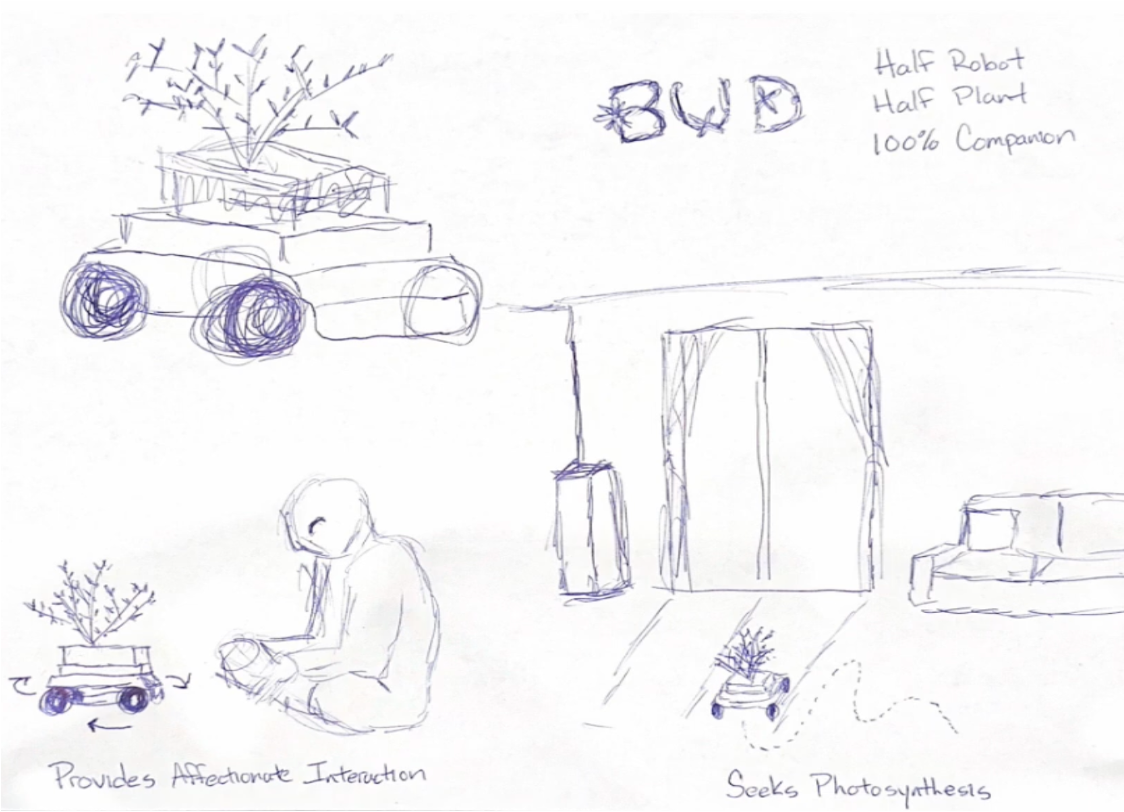 BUD
Half Robot
Half Plant
100% Companion
Provides Affectionate Interaction
Seeks Photosynthesis